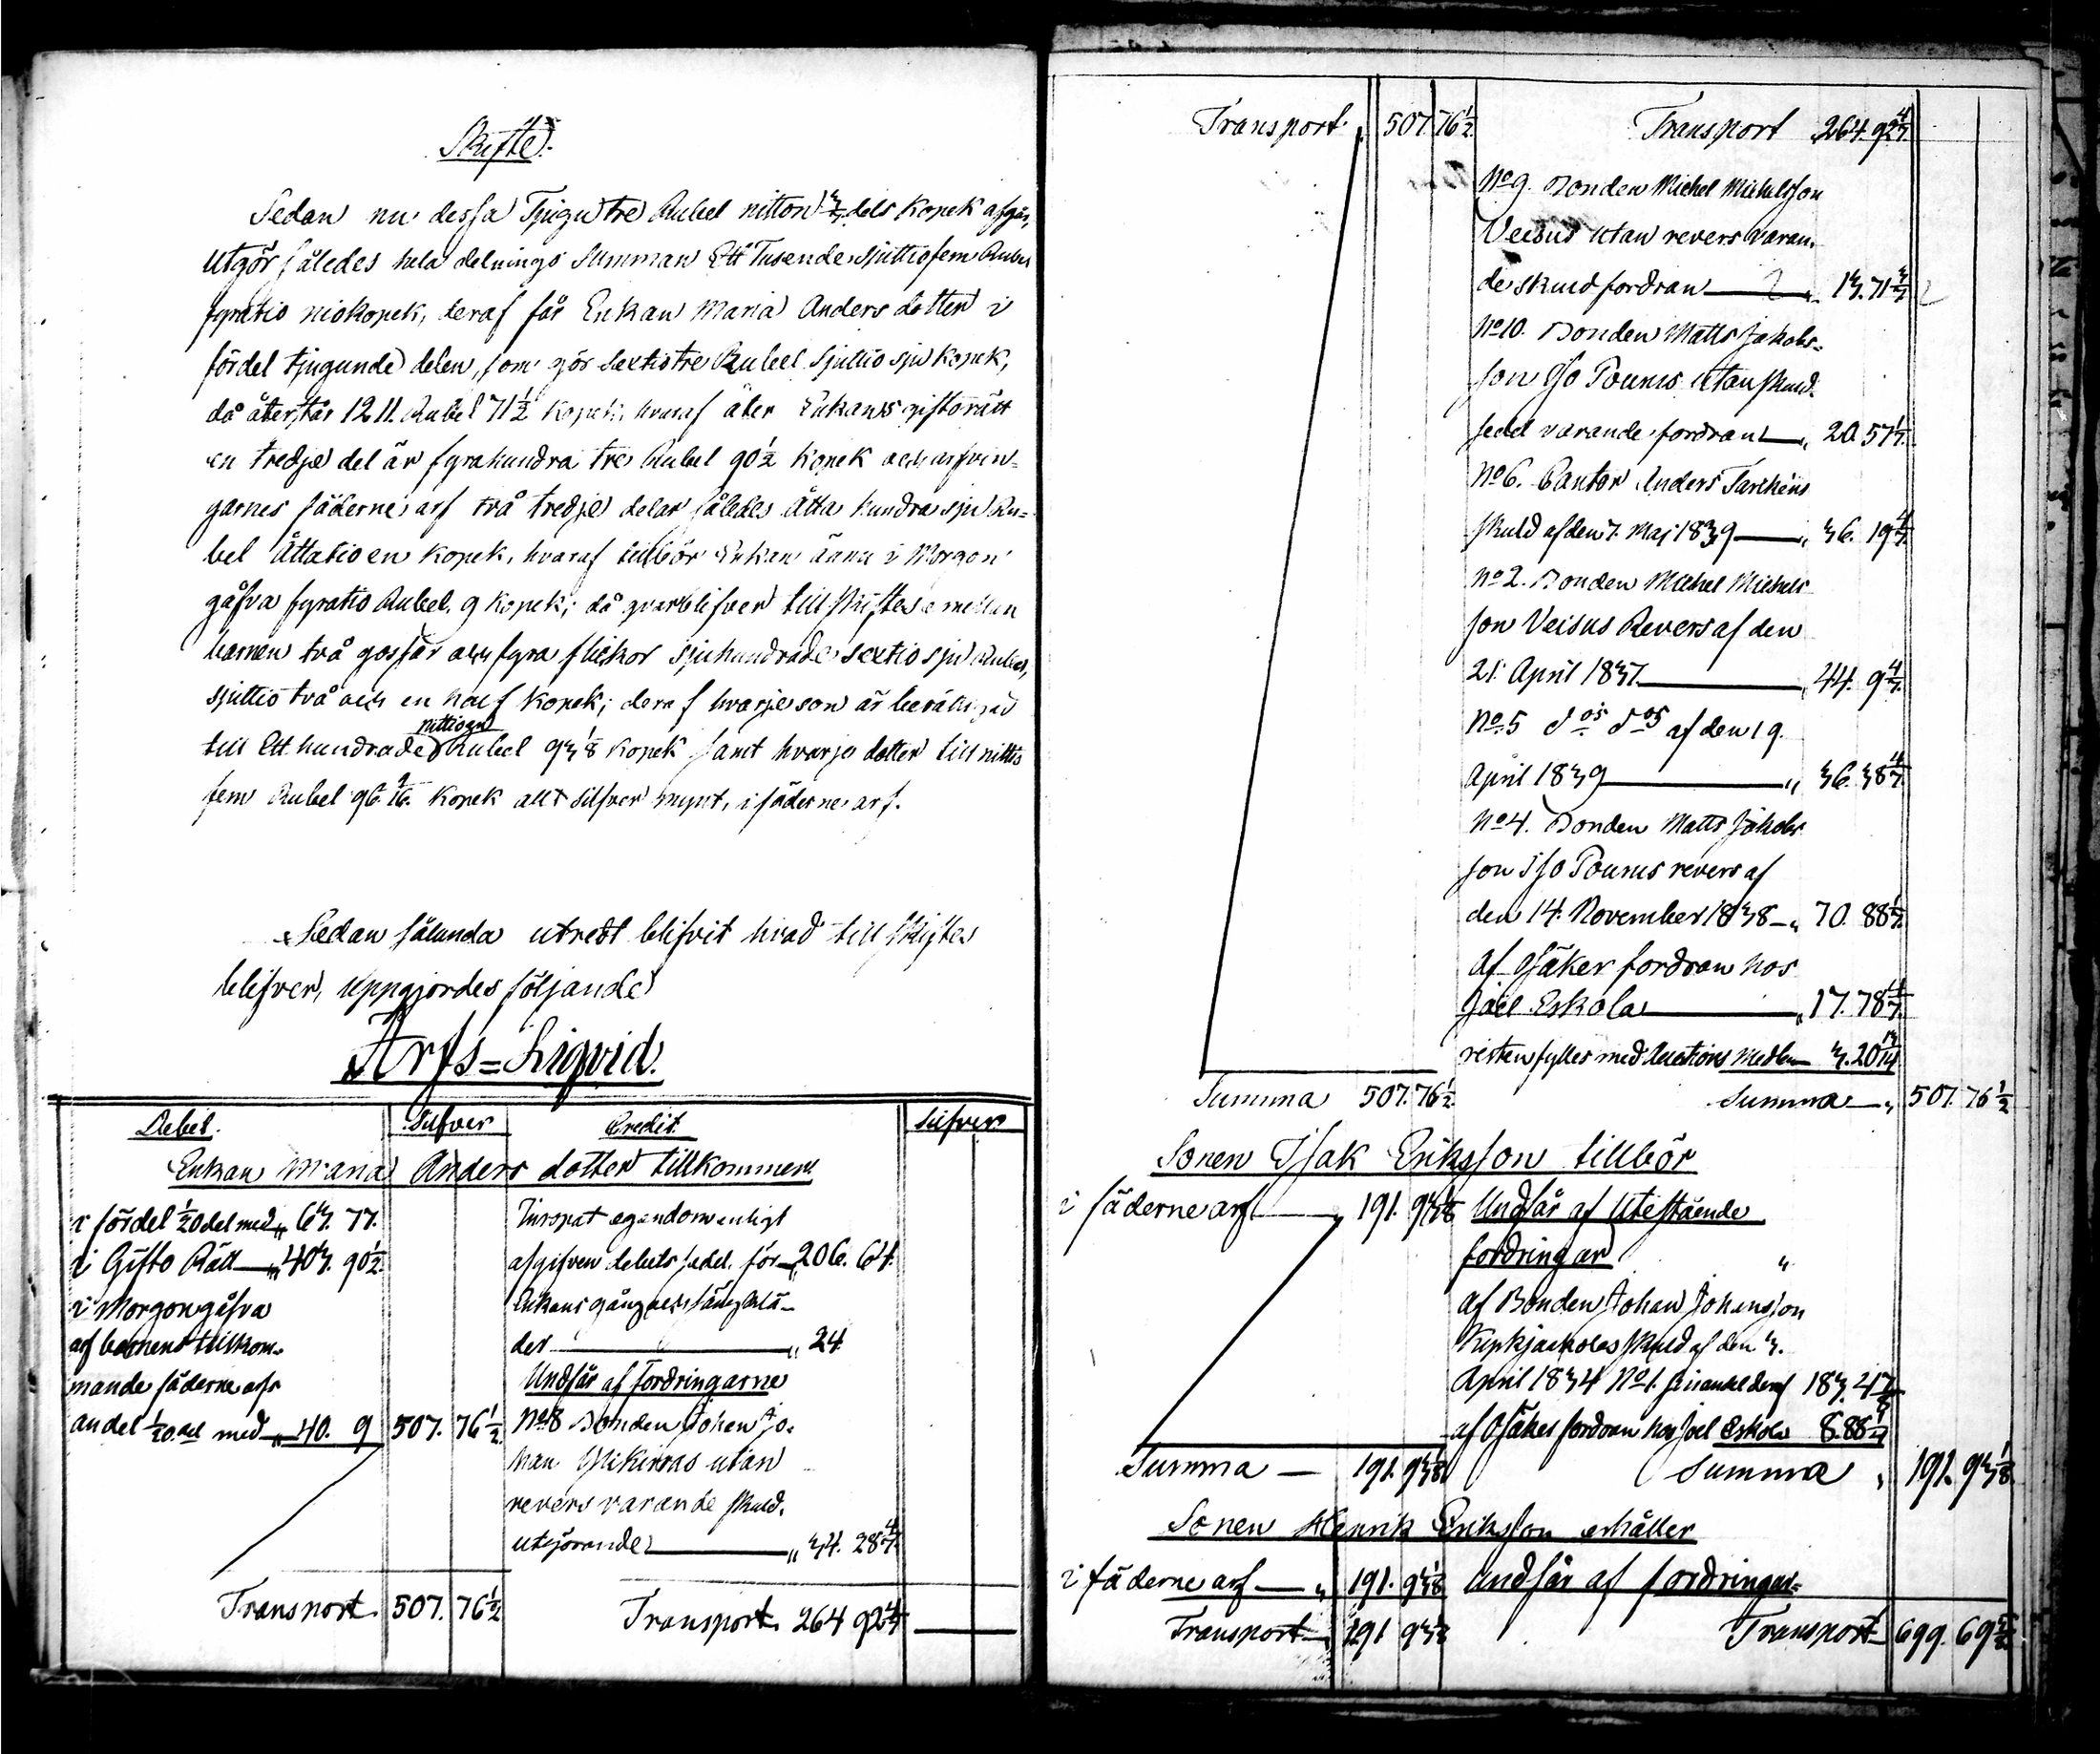 Skifte.
Sedan nu dessa Tjugu tre Rubel nitton 3/7 dels Kopek afgår,
utgör således hela delnings Summan Ett Tusende sjuttiofem Rubel
fyratio nio kopek, deraf får Enkan Maria Anders dotter i
fördel tjugunde delen, som gör Sextiotre Rubel sjuttio sju kopek,
då återstår 1211. Rubel 71 1/2 kopek, hvaraf åter Enkans giftorätt
en tredje del är fyrahundra tre Rubel 90 1/2 kopek och arfvin=
garnes fäderne arf två tredje delar således Åtta hundra sju Ru=
bel Åttatio en kopek, hvaraf tillhör Enkan ännu i Morgon
gåfva fyratio Rubel 9 kopek; då qvarblifver till skiftes emellan
barnen två gossar och fyra flickor sjuhundrade sextio sju Rubel,
sjuttio två och en half kopek; deraf hvarje son är berättigad
till Ett hundrade nittiogen Rubel 93 1/8 kopek samt hvarje dotter till nittio
fem Rubel 96 9/16 kopek allt silfver mynt, i fäderne arf.
Sedan sålunda utredt blifvit hvad till skiftes
blifver, uppgjordes följande
Arfs=Liqvid.
Debet. Silfver Credit Silfver
Enkan Maria Anders dotter tillkommer
i fördel 1/20 del med „ 63. 77.
i Gifto Rätt „ 403. 90 1/2
i Morgongåfva
af barnens tillkom-
mande fäderne arfs
andel 1/20 del med „ 40. 9 507. 76 1/2
Transport. 507. 76 1/2
egendom enligt
afgifven debets sedel för „ 206. 64.
Enkans gång och sängklä-
der „ 24
Undfår af Fordringarne
No 8 Bonden Johan Jo-
han utan
revers varande skuld
utgörande „ 34. 28 4/7
Transport. 264 92 4/7
Transport. 507. 76 1/2 Transport 264. 92 4/7
No 9. Bonden Michel Michelsson
Veisus utan revers varan-
de skuld fordran „ 13. 71 3/7
No 10. Bonden Matts Jakobs=
son Iso Pounus utan skuld
sedel varande fordran „ 20. 57 1/7
No 6. Cantor Anders
skuld af den 7. Maj 1839 „ 36. 19 4/7
No 2. Bonden Michel Michels
son Veisus Revers af den
21. April 1837 „ 44. 9 4/7
No 5 d:os d:os af den 19.
April 1839 „ 36. 38 4/7
No 4. Bonden Matts Jakobs
son Iso Pounus revers af
den 14. November 1838 „ 70. 88 1/7
af osäker fordran hos
Joel Eskola „ 17. 78 4/7
resten fylles med Auctions Medlen 3. 20 13/14
Summa 507. 76 1/2 Summa „ 507. 76 1/2
Sonen Isak Eriksson tillhör
i fäderne arf „ 191. 93 1/8 Undfår af Utestående
fordringar „
af Bonden Johan Johansson
skuld af den 3.
April 1834 No 1. deraf 183. 4 7/8
af Osäker fordran hos Joel Eskola 8. 88 1/4
Summa 191. 93 1/8 Summa „ 191. 93 1/8
Sonen Henrik Eriksson erhåller
i fäderne arf „ 191. 93 1/8 Undfår af fordringar=
Transport 191 93 1/8 Transport 699. 69 5/8